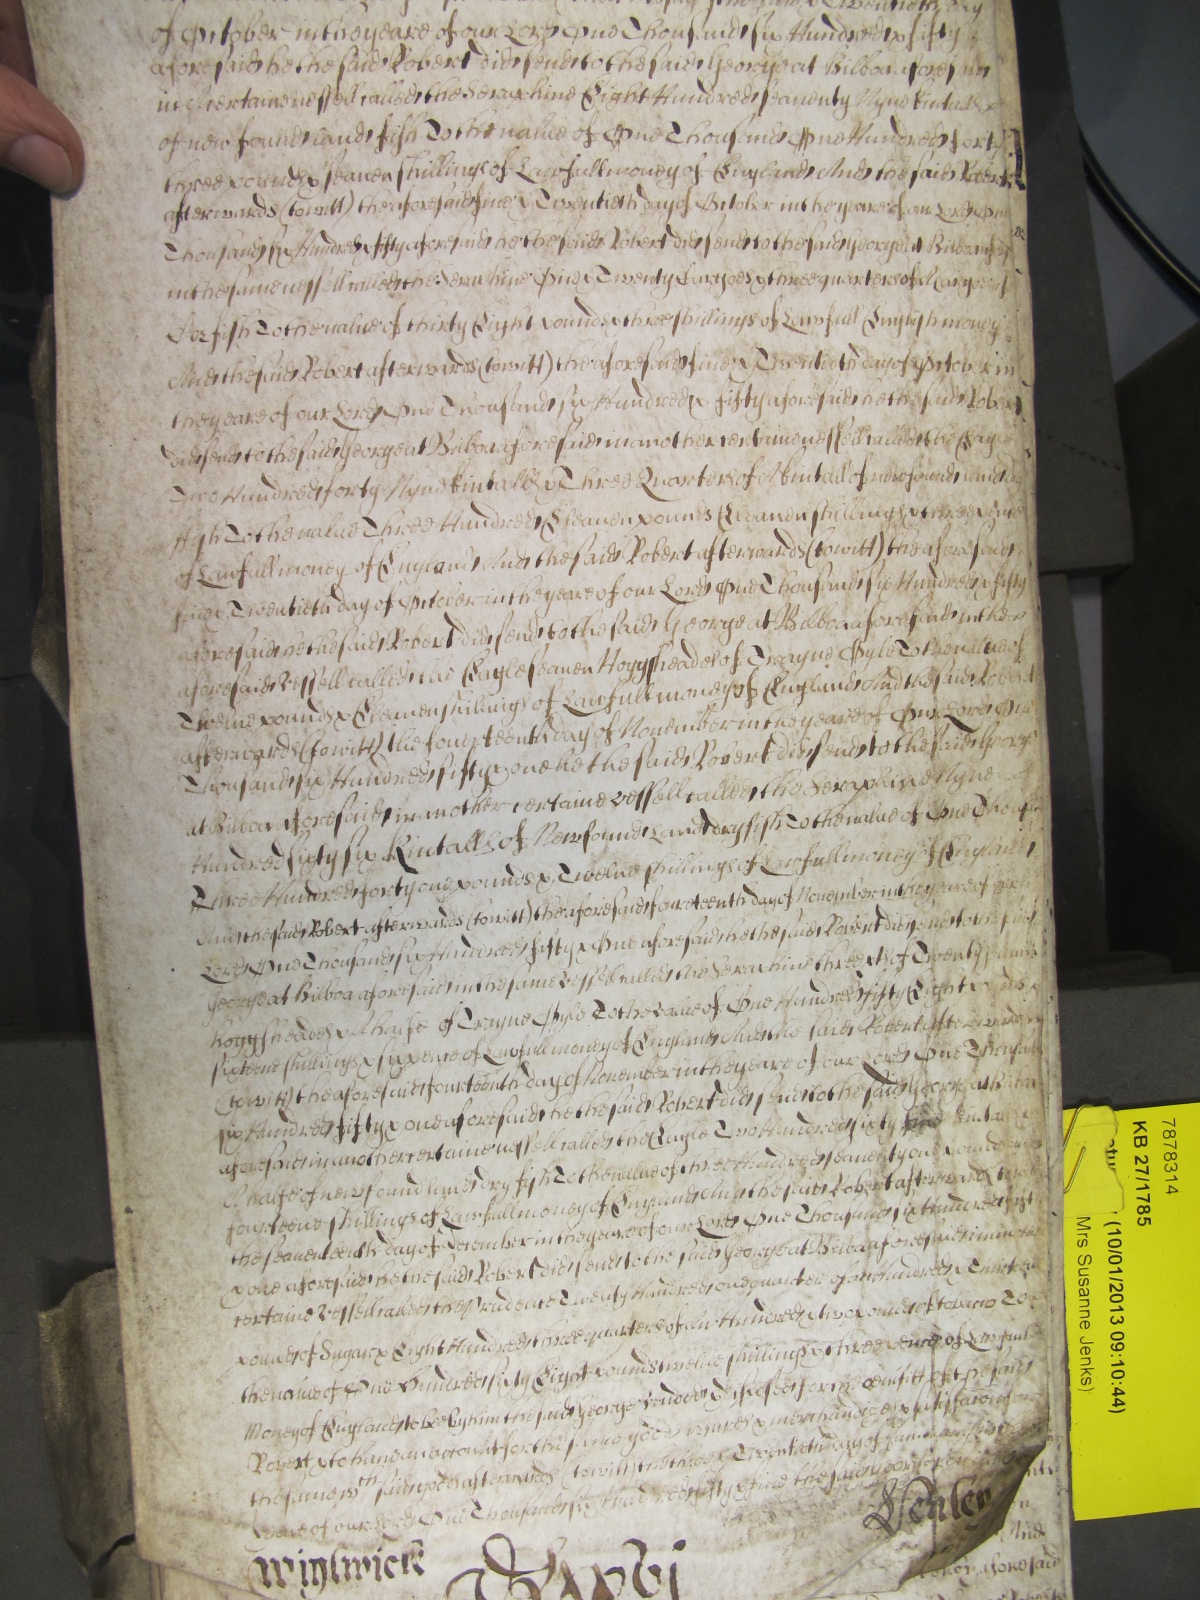 of October in the yeare of our Lord One Thousand six Hundred & fifty
aforesaid he the said Robert did send to the said George at Bilboa aforesaid
in a certaine vessell called the Seraphine Eight Hundred seaventy Nyne kintalls
of new found land fish To the value of One Thousand One Hundred forty
three pounds & seaven shillings of Lawfull money of England And the said Robert
afterwards (to witt) the aforesaid five & Twentieth day of October in the yeare of our Lord One
Thousand six Hundred & fifty aforesaid he the said Robert did send to the said George at Bilboa aforesaid
in the same vessell called the Seraphine One & Twenty Cargoes & three quarters of a Cargoe of
fish To the value of thirty Eight pounds & three shillings of Lawfull English money
And the said Robert afterwards (to witt) the aforesaid five & Twentieth day of October in
the yeare of our Lord One Thousand six Hundred & fifty aforesaid he the said Robert
did send to the said George at Bilboa aforesaid in another certaine vessell called the Eagle
Two Hundred forty Nyne kintalls & Three Quarters of A kintall of new found land
fish To the value Three Hundred Eleaven pounds Eleaven shillings & three pence
of Lawfull money of England And the said Robert afterwards (to witt) the aforesaid
five & Twentieth day of October in the yeare of our Lord One Thousand six Hundred & fifty
aforesaid he the said Robert did send to the said George at Bilboa aforesaid in the
aforesaid vessell called the Eagle seaven Hoggsheades of Trayne Oyle To the value of
Twelve pounds & Eleaven shillings of Lawfull money of England And the said Robert
afterwards (to witt) the fourteenth day of November in the yeare of Our Lord One
Thousand six Hundred fifty & one he the said Robert did send to the said George
at Bilboa aforesaid in another certaine vessell called the Seraphine Nyne
Hundred sixty six Kintalls of Newfound Land dry fish To the value of One Thousand
Three Hundred forty one pounds & Twelve shillings of Lawfull money of England
And the said Robert afterwards (to witt) the aforesaid fourteenth day of November in the yeare of our
Lord One Thousand six Hundred fifty & One aforesaid he the said Robert did send to the said
George at Bilboa aforesaid in the same vessell called the Seraphine three of Twenty
hoggsheades & A halfe of Trayne Oyle To the value of One Hundred fifty Eight pounds
sixteene shillings & six pence of Lawfull money of England And the said Robert afterwards
(to witt) the aforesaid fourteenth day of November in the yeare of our Lord One Thousand
six Hundred fifty & one aforesaid he the said Robert did send to the said George at Bilboa
aforesaid in another certaine vessell called the Eagle Two Hundred sixty kintalls
A halfe of new found land dry fish To the value of three Hundred seaventy one pounds
fourteene shillings of Lawfull money of England And the said Robert afterwards to witt
the seaventeenth day of December in the yeare of our Lord One Thousand six Hundred fifty
& one aforesaid he the said Robert did send to the said George at Bilboa aforesaid in another
certaine vessell called the Prudence Twenty Hundred one quarter of an Hundred &
pounds of Sugar & Eight Hundred three quarters of an Hundred & two pounds of tobacco To
the value of One Hundred sixty Eight pounds twelve shillings & three pence of Lawfull
Money of England to bee by him the said George vended & disposed for the benefitt of the said
Robert & to have an account for the same goods wares & merchandizes & satisfaction for
the same wth said goods afterwards (to witt) the three & Twentieth day of January in the
yeare of our Lord One Thousand six Hundred fifty & five the said George
Wightwick
Henley
7878314
KB 27/1785
(10/01/2013 09:10:44)
Mrs Susanne Jenks)